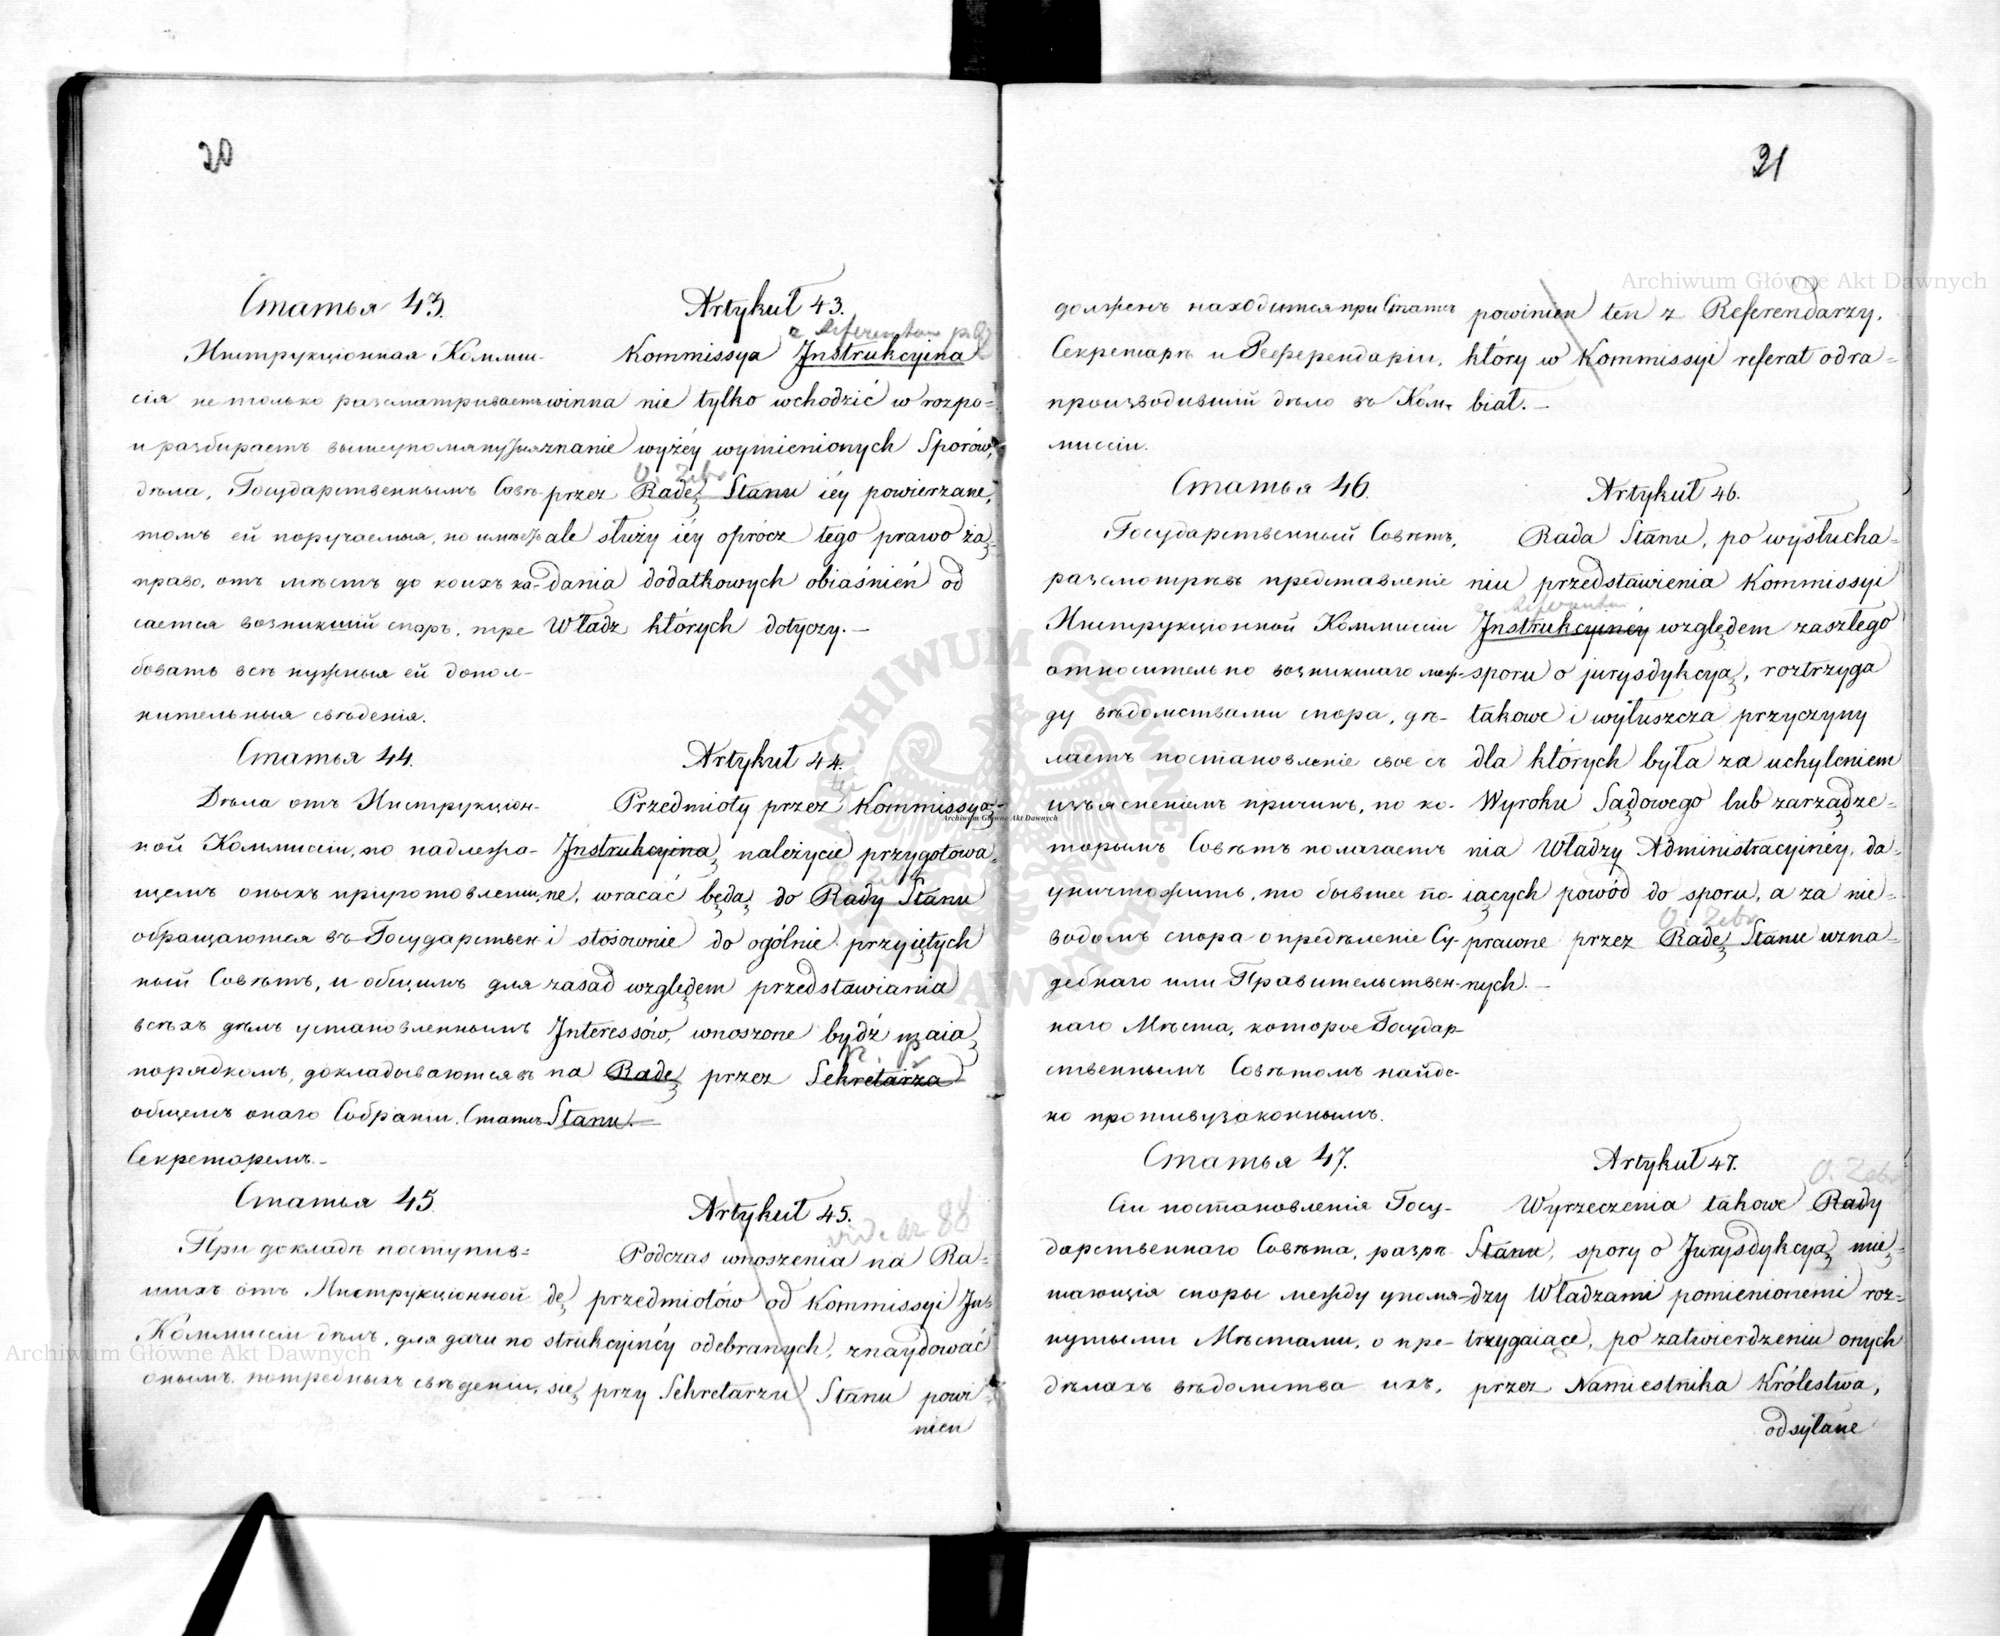 20
Статья 43.
Инструкціонная Коммис-
сія не только разсматриваетъ
и разбираетъ вышеупомянутыя
дѣла, Государственнымъ Совѣ-
томъ ей поручаемыя, но имѣетъ
право, отъ мѣстъ до коихъ ка-
сается возникшій споръ, тре
бовать всѣ нужныя ей допол-
нительныя свѣденія.
Статья 44.
Дѣла отъ Инструкціон-
ной Коммиссіи, по надлежа-
щемъ оныхъ приготовленіи,
обращаются въ Государствен-
ный Совѣтъ, и общимъ для
всѣхъ дѣлъ установленнымъ
порядкомъ, докладываются въ
общемъ онаго Собраніи, Статсъ
Секретаремъ.-
Статья 45.
При докладѣ поступив-
шихъ отъ Инструкціонной
Коммиссіи дѣлъ, для дачи по
онымъ потребныхъ свѣденій,
Artykuł 43.
z Referentem
Kommissya Instrukcyina
winna nie tylko wchodzić w rozpo=
znanie wyżéy wymienionych Sporów,
O. Zebr
przez Radę Stanu iéy powierzane,
ale służy iéy oprócz tego prawo żą=
dania dodatkowych obiaśnień od
Władz których dotyczy.—
Artykuł 44.
Przedmioty przez Kommissyą
Instrukcyiną należycie przygotowa=
ne, wracać będą do Rady Stanu
i stosownie do ogólnie przyiętych
zasad względem przedstawiania
Interessów, wnoszone bydź maią
na Radę przez Sekretarza
Stanu.—
Artykuł 45.
vide ar. 88
Podczas wnoszenia na Ra=
dę przedmiotów od Kommissyi In=
strukcyinéy odebranych, znaydować
się przy Sekretarzu Stanu powi
nien
21
долженъ находиться при Статсъ
Секретарѣ и Референдарій,
производившій дѣло въ Ком-
миссіи.
Статья 46.
Государственный Совѣтъ,
разсмотрѣвъ представленіе
Инструкціонной Коммиссіи
относительно возникшаго меж-
ду вѣдомствами спора, дѣ-
лаетъ постановленіе свое съ
изъясненіемъ причинъ, по ко-
торымъ Совѣтъ полагаетъ
уничтожить, то бывшее по-
водомъ спора опредѣленіе Су-
дебнаго или Правительствен-
наго Мѣста, которое Государ-
ственнымъ Совѣтомъ найде-
но противузаконнымъ.
Статья 47.
Сіи постановленія Госу-
дарственнаго Совѣта, разрѣ
шающія споры между упомя-
нутыми Мѣстами, о пре-
дѣлахъ вѣдомства ихъ,
powinien ten z Referendarzy,
który w Kommissyi referat odra=
biał.—
Artykuł 46.
Rada Stanu, po wysłucha=
niu przedstawienia Kommissyi
z Referentem
Instrukcyinéy względem zaszłego
sporu o jurysdykcyą, roztrzyga
takowe i wyłuszcza przyczyny
dla których była za uchyleniem
Wyroku Sądowego lub zarządze=
nia Władzy Administracyinéy, da=
iących powód do sporu, a za nie=
O. Zebr
prawne przez Radę Stanu uzna=
nych.—
Artykuł 47.
O. Zebr
Wyrzeczenia takowe Rady
Stanu, spory o Jurysdykcyą mię=
dzy Władzami pomienionemi roz=
trzygaiące, po zatwierdzeniu onych
przez Namiestnika Królestwa,
odsyłane
Archiwum Główne Akt Dawnych
Archiwum Główne Akt Dawnych
Archiwum Główne Akt Dawnych
ARCHIWUM GŁÓWNE AKT DAWNYCH